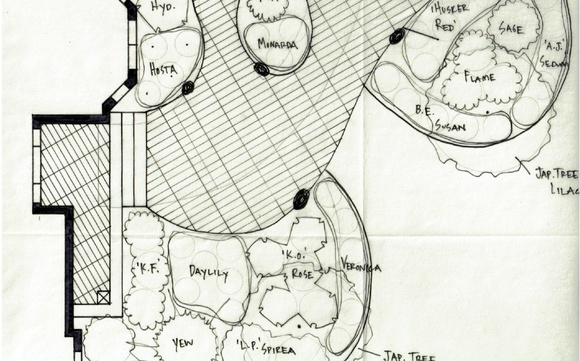 HYD.
'HUSKER
RED'
SAGE
MONARDA
'A.J.'
SEDUM
HOSTA
FLAME
B.E.
SUSAN
JAP. TREE
LILAC
'K.F.'
DAYLILY
'K.O.'
ROSE
VERONICA
YEW
'L.P.' SPIREA
JAP. TREE